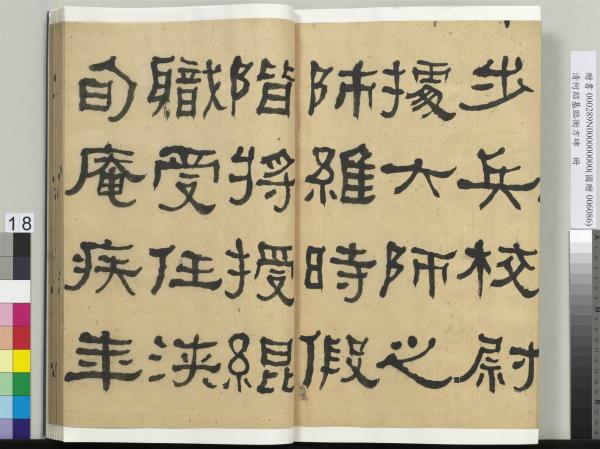 步兵校尉
據六師之
帥維時假
階將授緄
職受任浹
旬庵疾年
贈書 000289N000000000(國贈 006086)
清何紹基臨衡方碑 冊
18
A
M
B